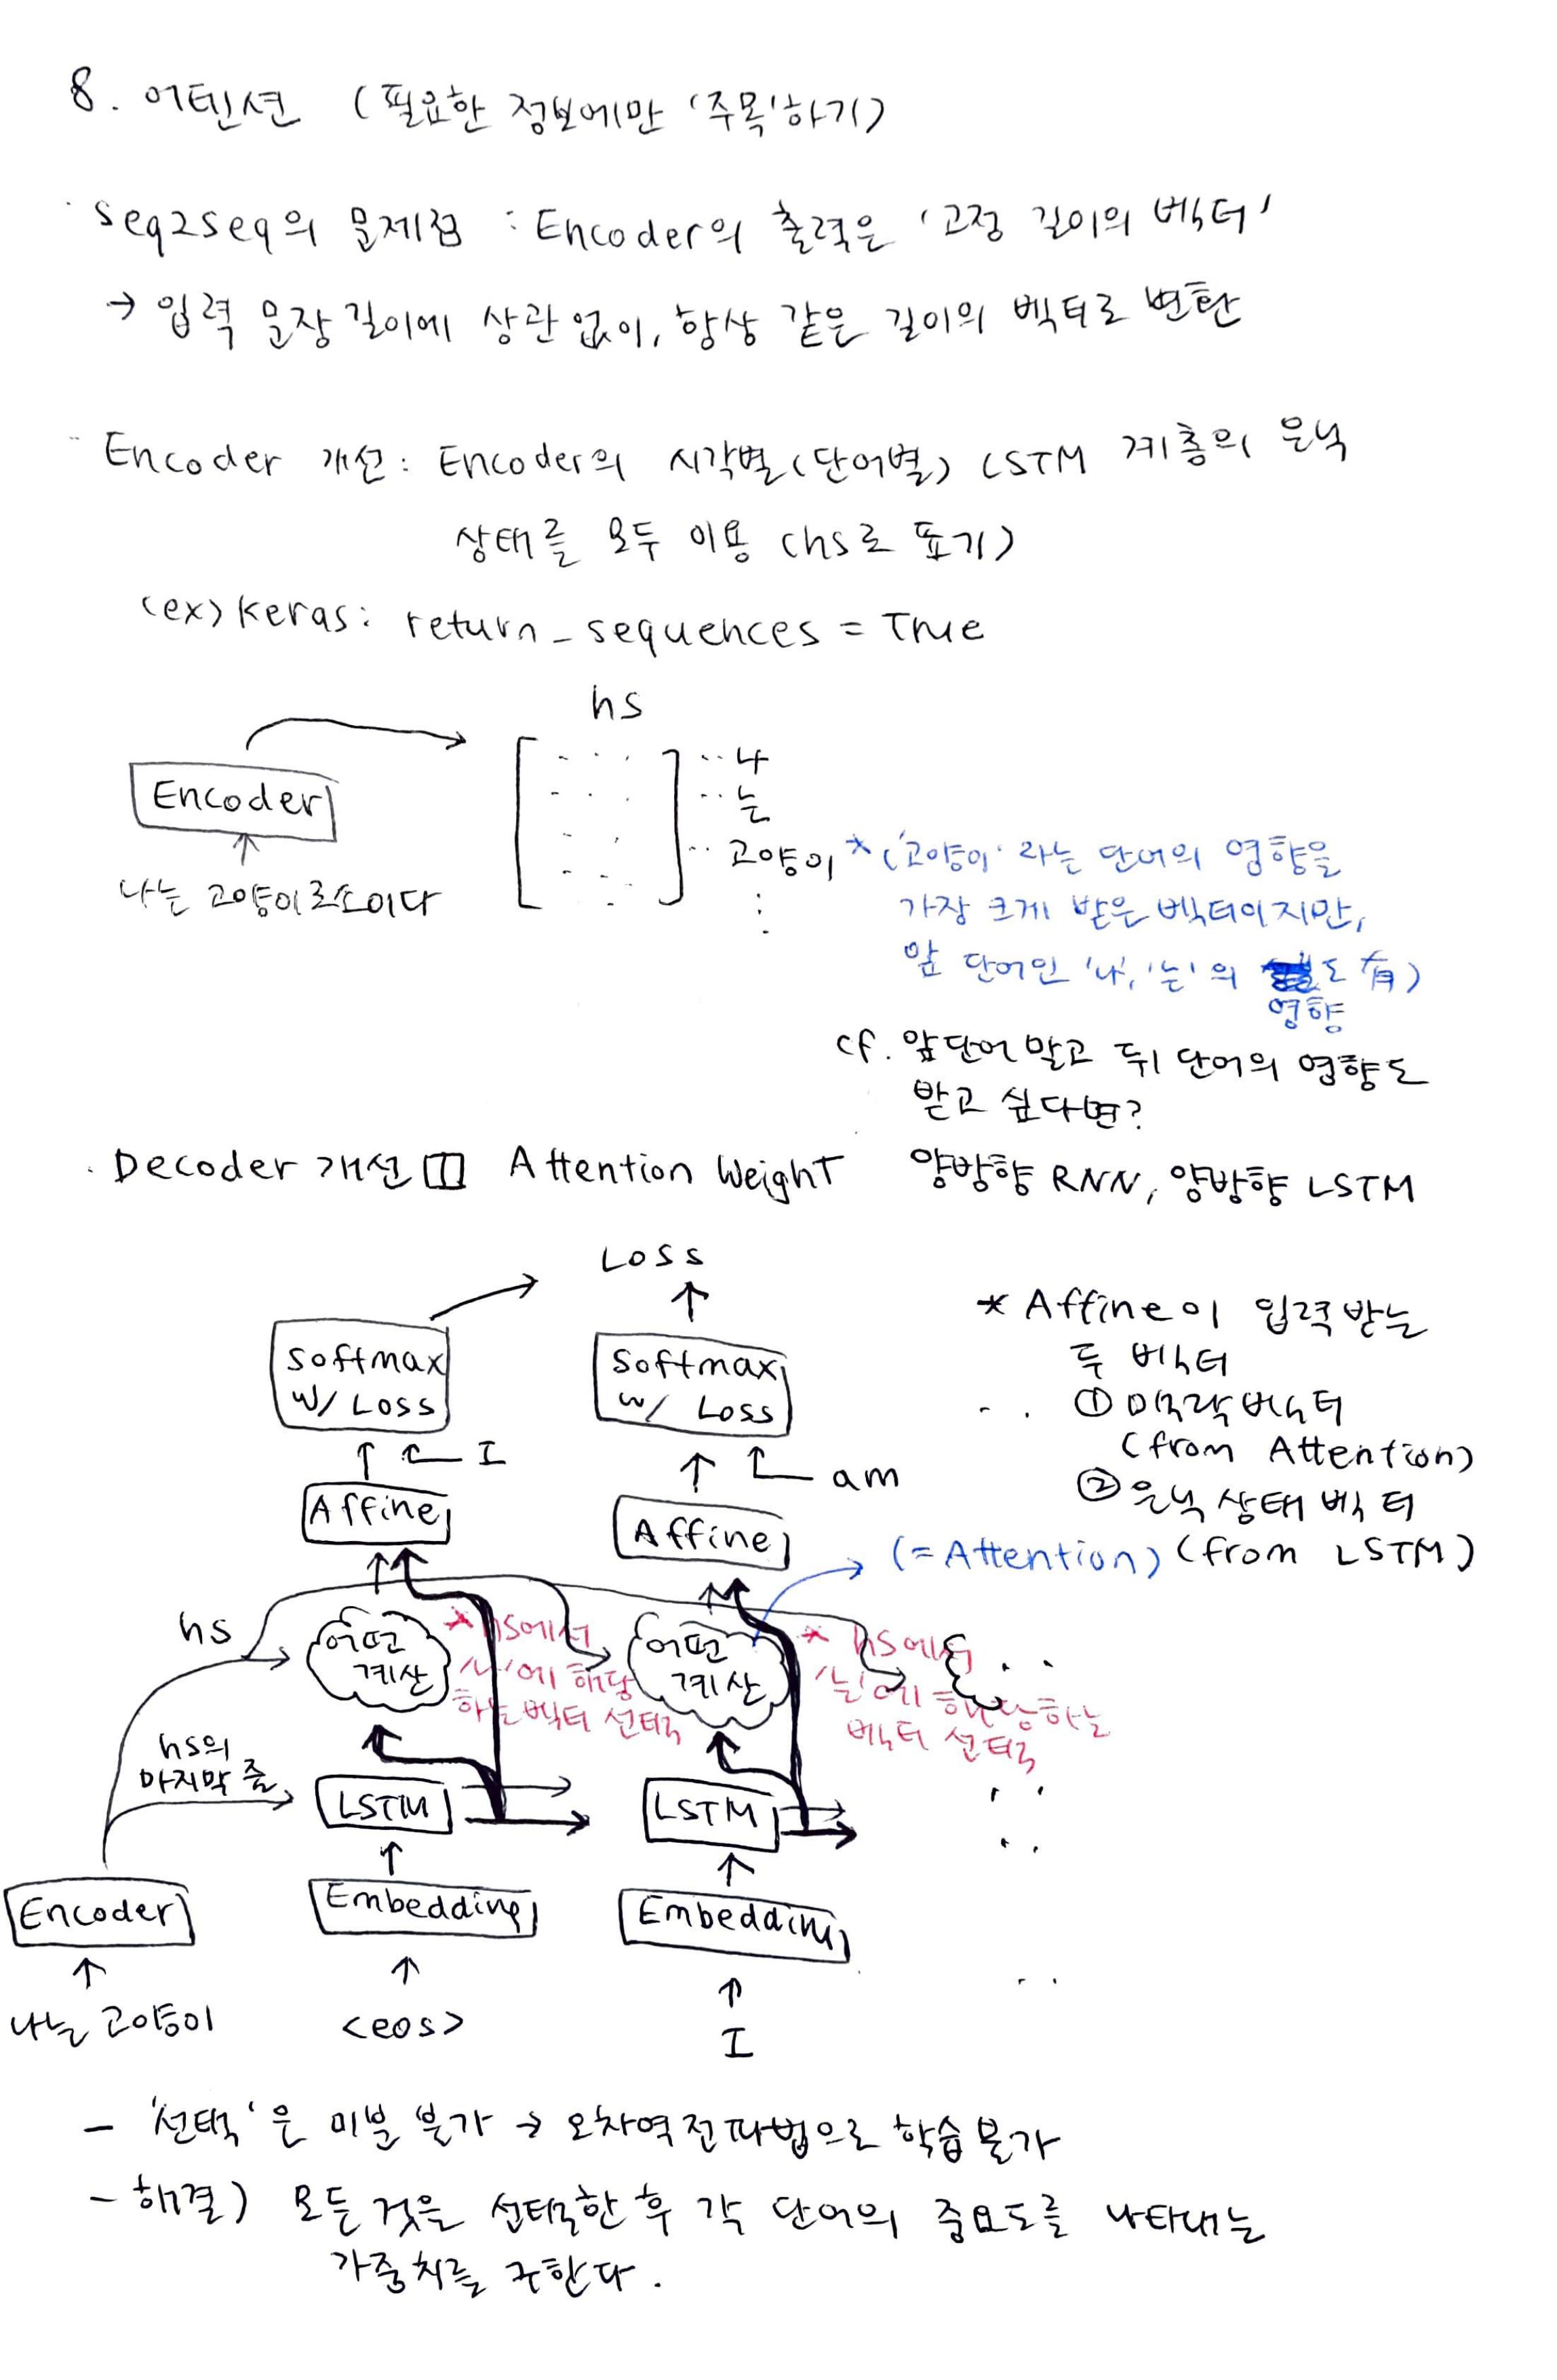 8. 어텐션 (필요한 정보에만 '주목'하기)
· seq2seq의 문제점 : Encoder의 출력은 '고정 길이의 벡터'
→ 입력 문장 길이에 상관 없이, 항상 같은 길이의 벡터로 변환
· Encoder 개선 : Encoder의 시각별(단어별) LSTM 계층의 은닉
상태를 모두 이용 (hs로 표기)
(ex) keras : return_sequences = True
hs
Encoder
나는 고양이로소이다
·· 나
·· 는
·· 고양이
⋮
* ('고양이' 라는 단어의 영향을
가장 크게 받은 벡터이지만,
앞 단어인 '나', '는'의 영향도 有)
cf. 앞단어 말고 뒤 단어의 영향도
받고 싶다면?
양방향 RNN, 양방향 LSTM
· Decoder 개선 1 Attention Weight
Loss
Softmax
w/ Loss
Softmax
w/ Loss
I
am
Affine
Affine
* Affine이 입력 받는
두 벡터
① 맥락벡터
(from Attention)
② 은닉 상태 벡터
(from LSTM)
(= Attention)
hs
어떤
계산
* hs에서
'나'에 해당
하는 벡터 선택
어떤
계산
* hs에서
'는'에 해당하는
벡터 선택
hs의
마지막 줄
LSTM
LSTM
Encoder
Embedding
Embedding
나는 고양이
<eos>
I
- '선택'은 미분 불가 → 오차역전파법으로 학습 불가
- 해결) 모든 것을 선택한 후 각 단어의 중요도를 나타내는
가중치를 구한다.